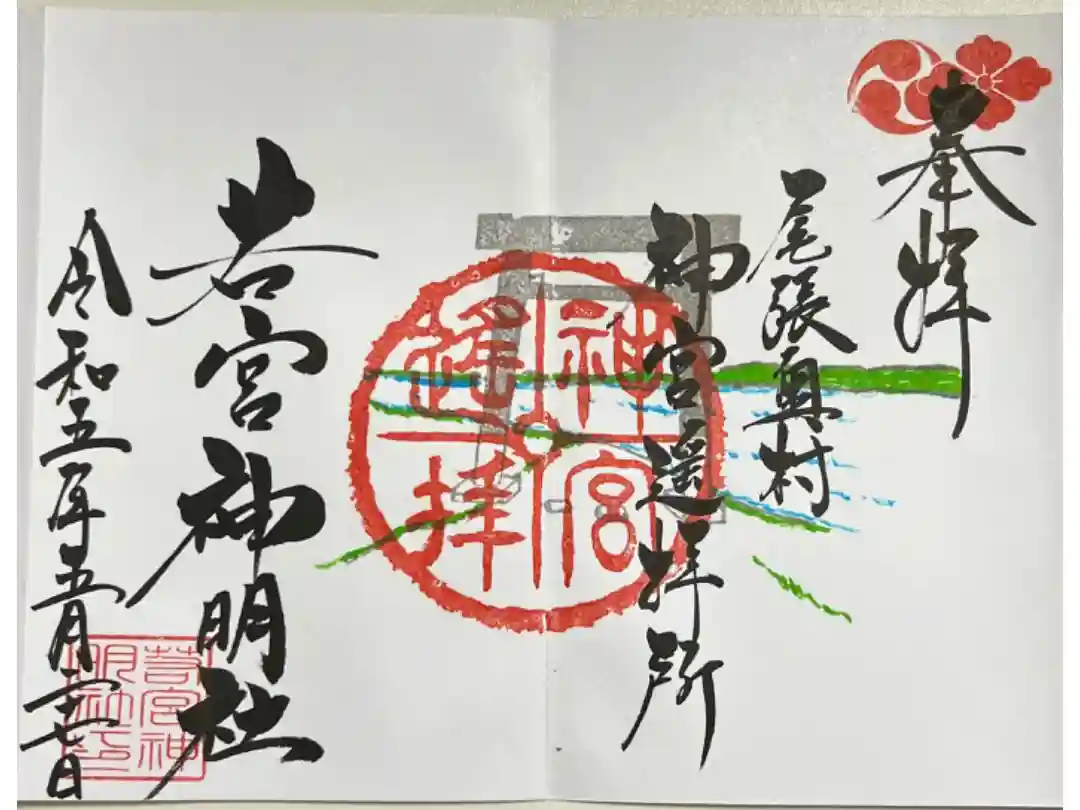 奉拝
尾張奥村
神宮遥拝所
神宮
遥拝
若宮神明社
令和五年五月二十七日
若宮神
明社印